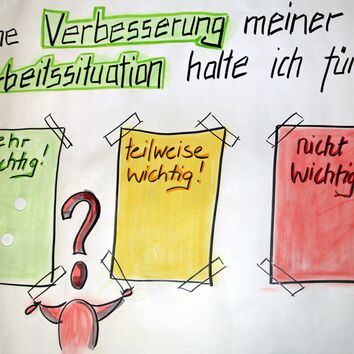 ne Verbesserung meiner
rbeitssituation halte ich für
ehr
chtig!
teilweise
wichtig!
nicht
wichtig
?